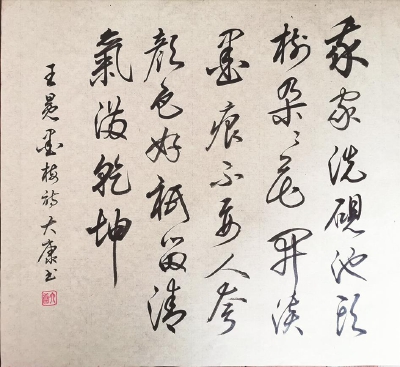 我家洗硯池头
樹朵々花開淡
墨痕不要人夸
顏色好祇留清
氣滿乾坤
王冕墨梅詩大康书